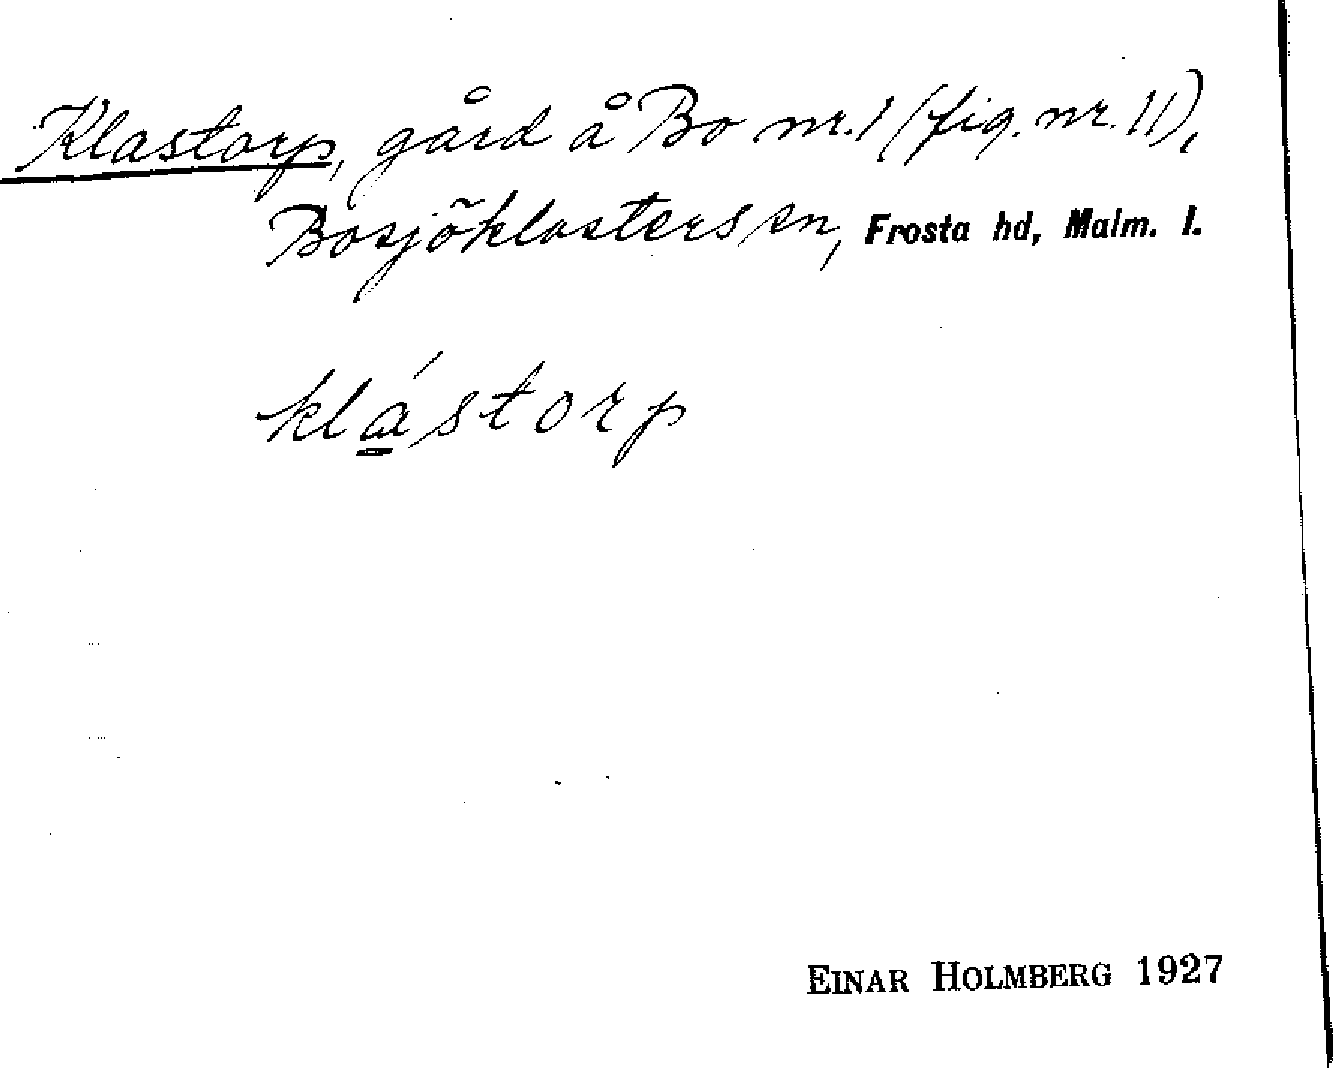 Klastorp, gård å Bo nr. 1 (fig. nr. 11),
Bosjöklosters sn, Frosta hd, Malm. l.
klástorp
EINAR HOLMBERG 1927